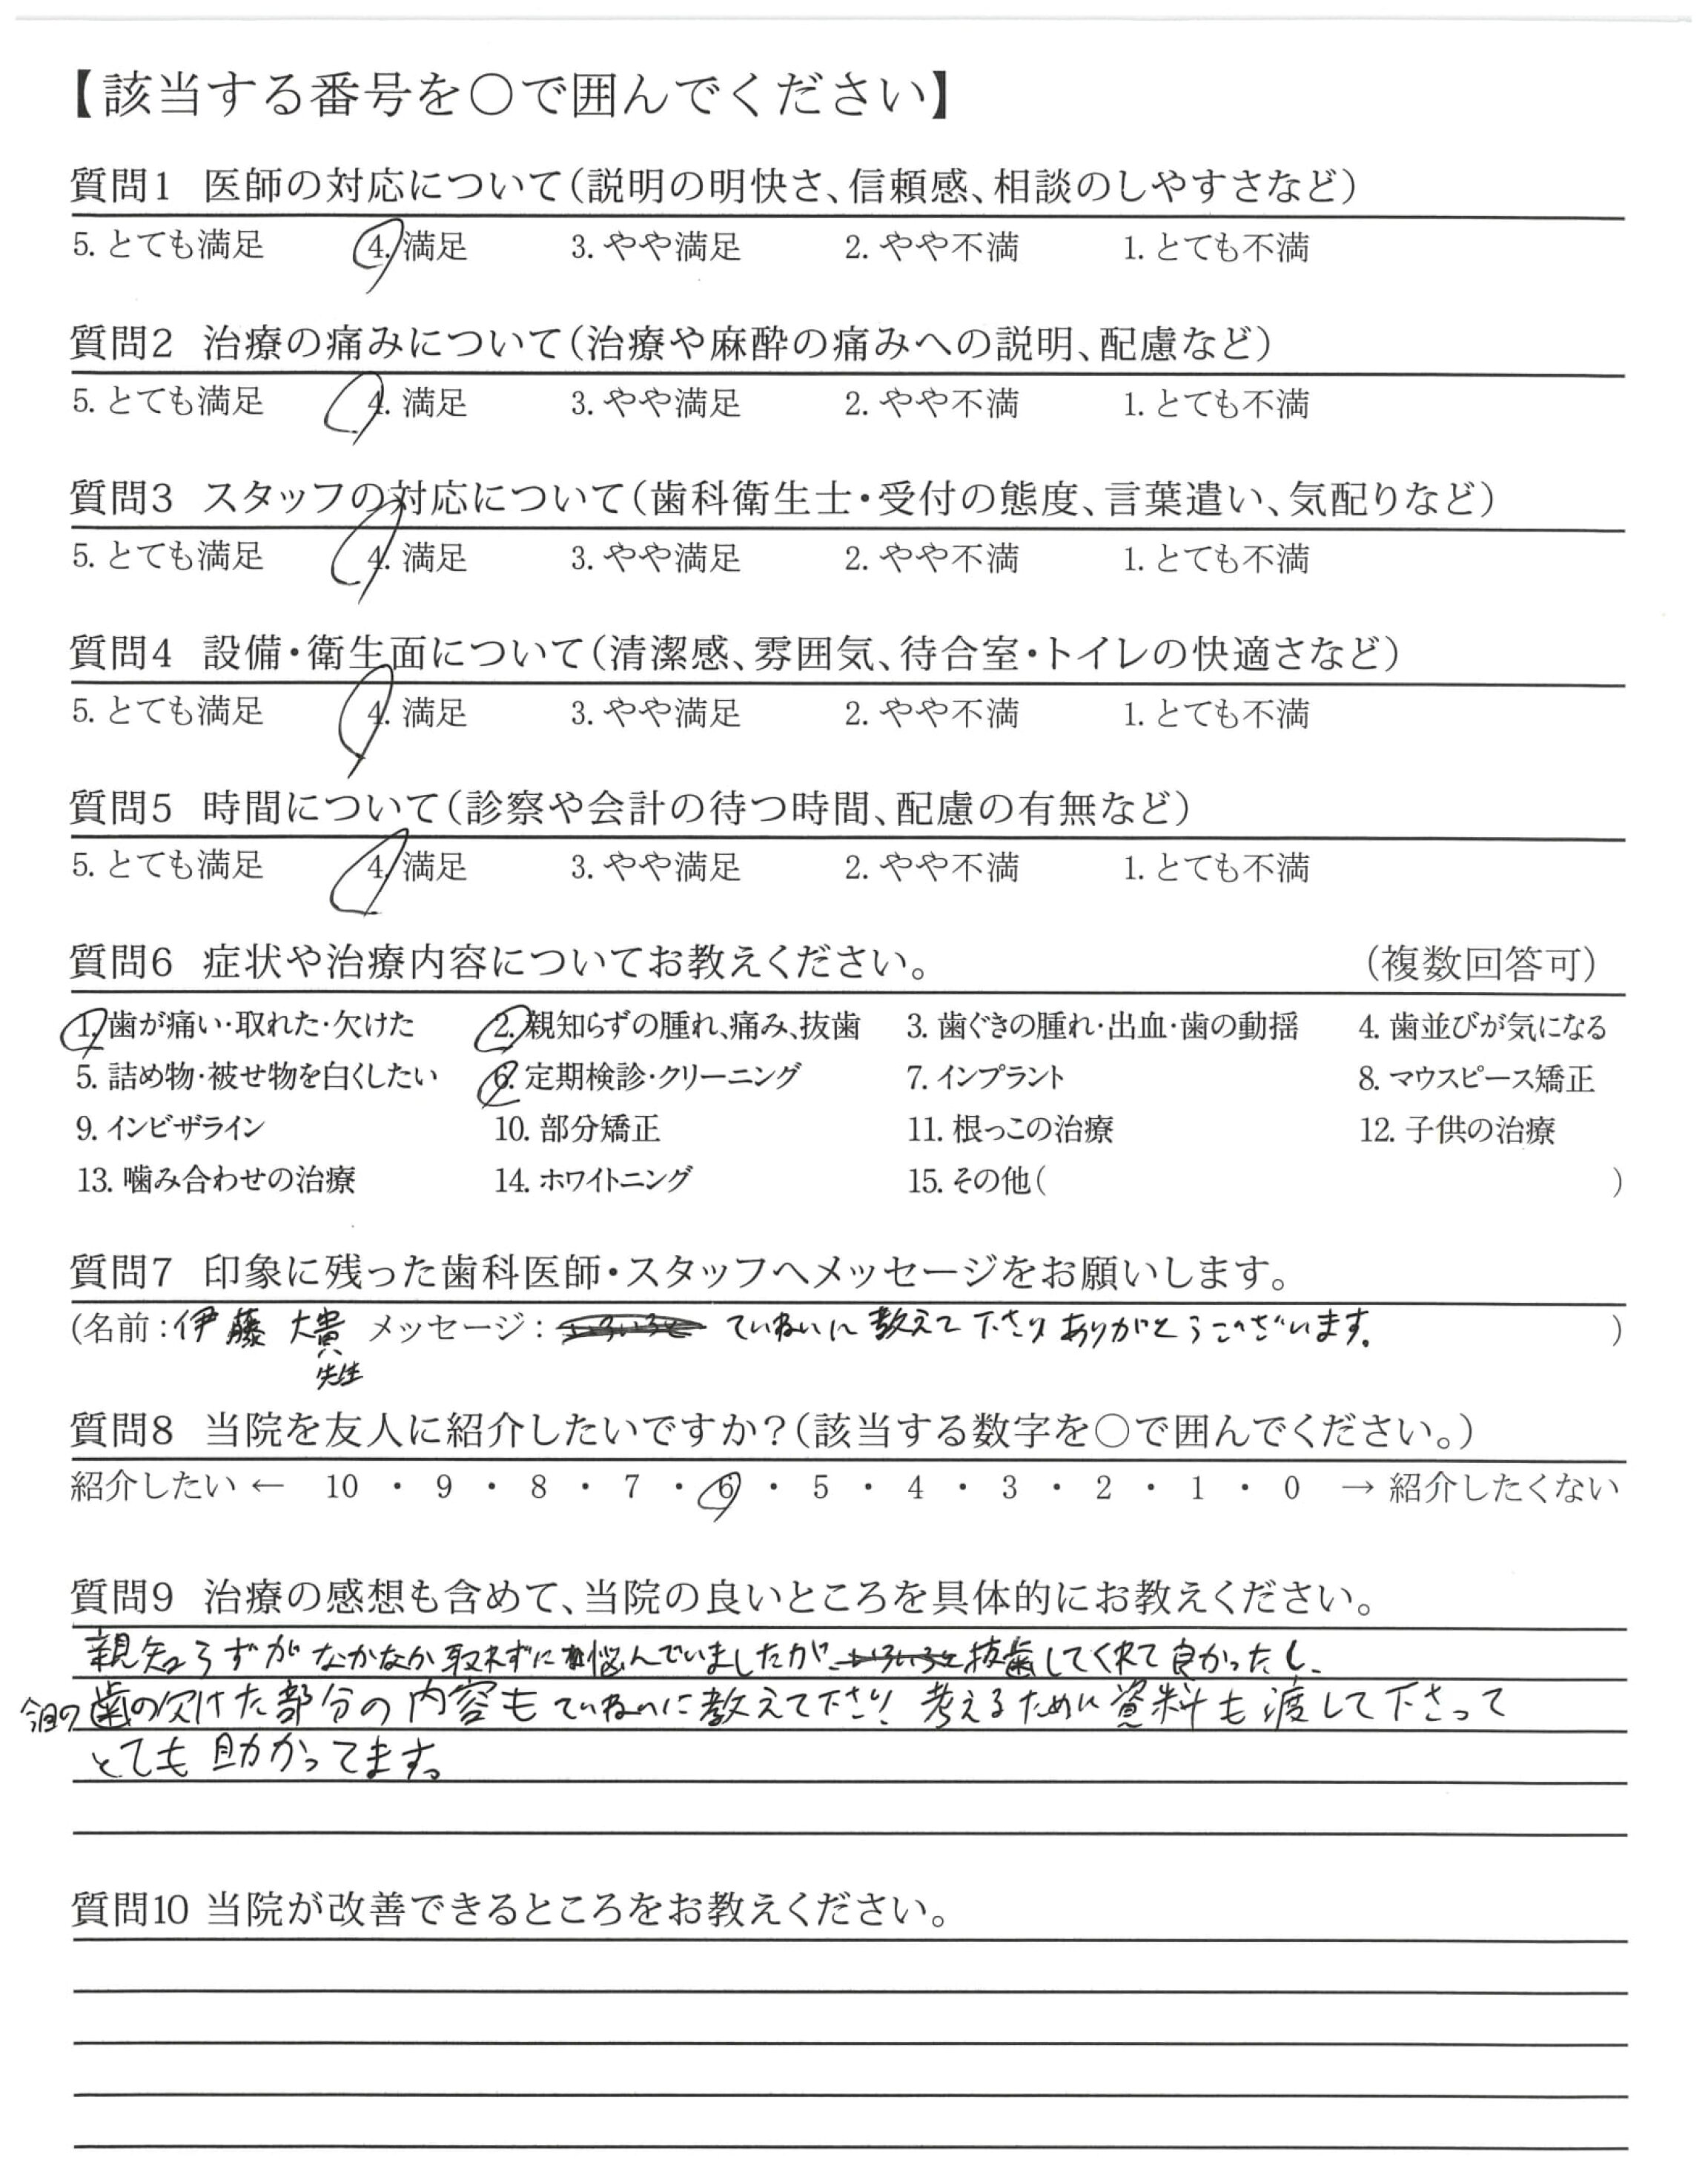 【該当する番号を○で囲んでください】
質問1 医師の対応について(説明の明快さ、信頼感、相談のしやすさなど)
5. とても満足 4. 満足 3. やや満足 2. やや不満 1. とても不満
質問2 治療の痛みについて(治療や麻酔の痛みへの説明、配慮など)
5. とても満足 4. 満足 3. やや満足 2. やや不満 1. とても不満
質問3 スタッフの対応について(歯科衛生士・受付の態度、言葉遣い、気配りなど)
5. とても満足 4. 満足 3. やや満足 2. やや不満 1. とても不満
質問4 設備・衛生面について(清潔感、雰囲気、待合室・トイレの快適さなど)
5. とても満足 4. 満足 3. やや満足 2. やや不満 1. とても不満
質問5 時間について(診察や会計の待つ時間、配慮の有無など)
5. とても満足 4. 満足 3. やや満足 2. やや不満 1. とても不満
質問6 症状や治療内容についてお教えください。 (複数回答可)
1. 歯が痛い・取れた・欠けた 2. 親知らずの腫れ、痛み、抜歯 3. 歯ぐきの腫れ・出血・歯の動揺 4. 歯並びが気になる
5. 詰め物・被せ物を白くしたい 6. 定期検診・クリーニング 7. インプラント 8. マウスピース矯正
9. インビザライン 10. 部分矯正 11. 根っこの治療 12. 子供の治療
13. 噛み合わせの治療 14. ホワイトニング 15. その他( )
質問7 印象に残った歯科医師・スタッフへメッセージをお願いします。
(名前：伊藤 大貴 メッセージ： ていねいに教えて下さりありがとうございます。 )
先生
質問8 当院を友人に紹介したいですか？(該当する数字を○で囲んでください。)
紹介したい ← 10 ・ 9 ・ 8 ・ 7 ・ 6 ・ 5 ・ 4 ・ 3 ・ 2 ・ 1 ・ 0 → 紹介したくない
質問9 治療の感想も含めて、当院の良いところを具体的にお教えください。
親知らずがなかなか取れずに悩んでいましたが、抜歯してくれて良かったし、
今回の歯の欠けた部分の内容もていねいに教えて下さり考えるために資料も渡して下さって
とても助かってます。
質問10 当院が改善できるところをお教えください。